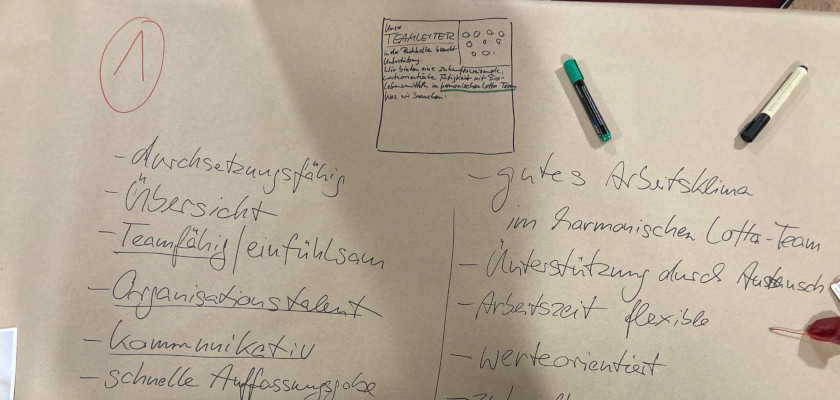 1
Unser
TEAMLEITER
in der Packhalle braucht
Unterstützung.
Wir bieten eine zukunftsweisende,
werteorientierte Tätigkeit mit Bio-
Lebensmitteln im harmonischen Lotta Team
Was wir brauchen:
- durchsetzungsfähig
- Übersicht
- Teamfähig/einfühlsam
- Organisationstalent
- kommunikativ
- schnelle Auffassungsgabe
- gutes Arbeitsklima
im harmonischen Lotta-Team
- Unterstützung durch Austausch
- Arbeitszeit flexible
- werteorientiert